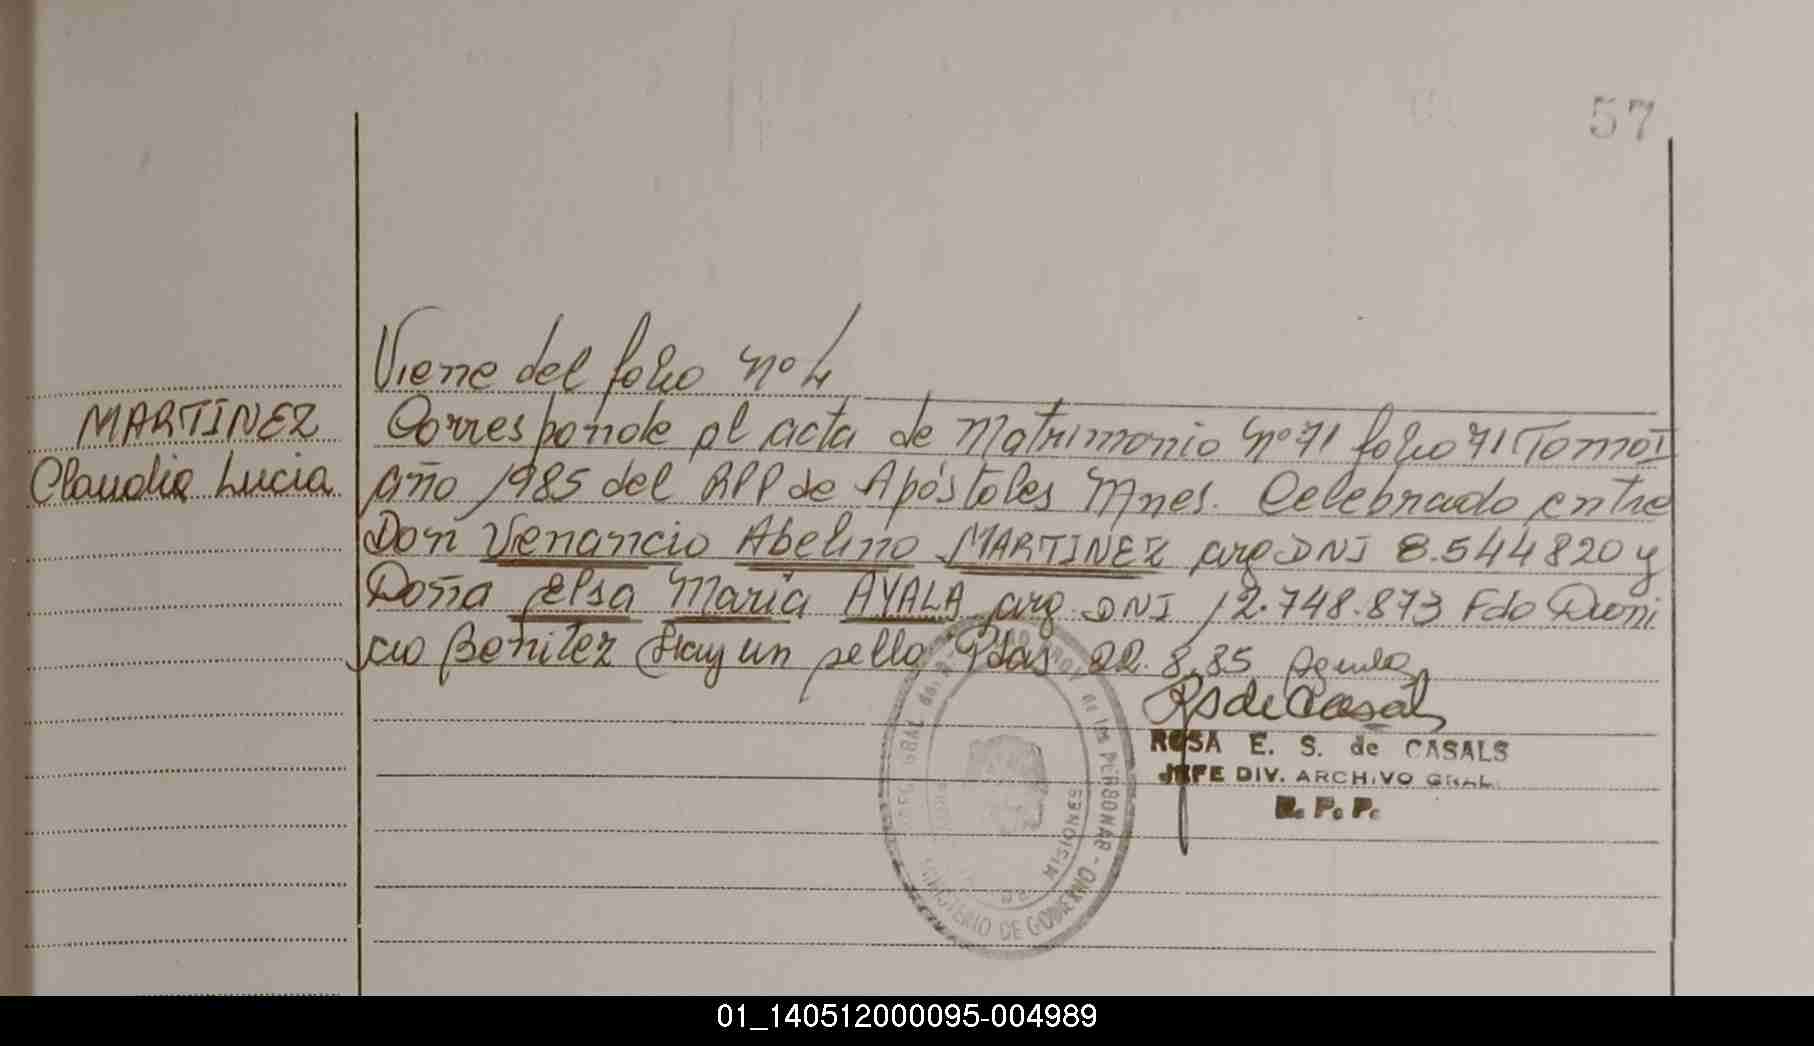 57
Viene del folio Nº 4
MARTINEZ
Claudia Lucia
Corresponde al acta de Matrimonio Nº 71 folio 71 Tomo I
año 1985 del RPP de Apóstoles Mnes. Celebrado entre
Don Venancio Abelino MARTINEZ arg DNI 8.544820 y
Doña Elsa Maria AYALA arg. DNI 12.748.873 Fdo Dioni
cio Benitez Hay un sello Pdas 22.8.85
RSdeCasals
ROSA E. S. de CASALS
JEFE DIV. ARCHIVO GRAL.
R. P. P.
GRAL de los PERSONAS - MINISTERIO DE GOBIERNO
MISIONES
01_140512000095-004989